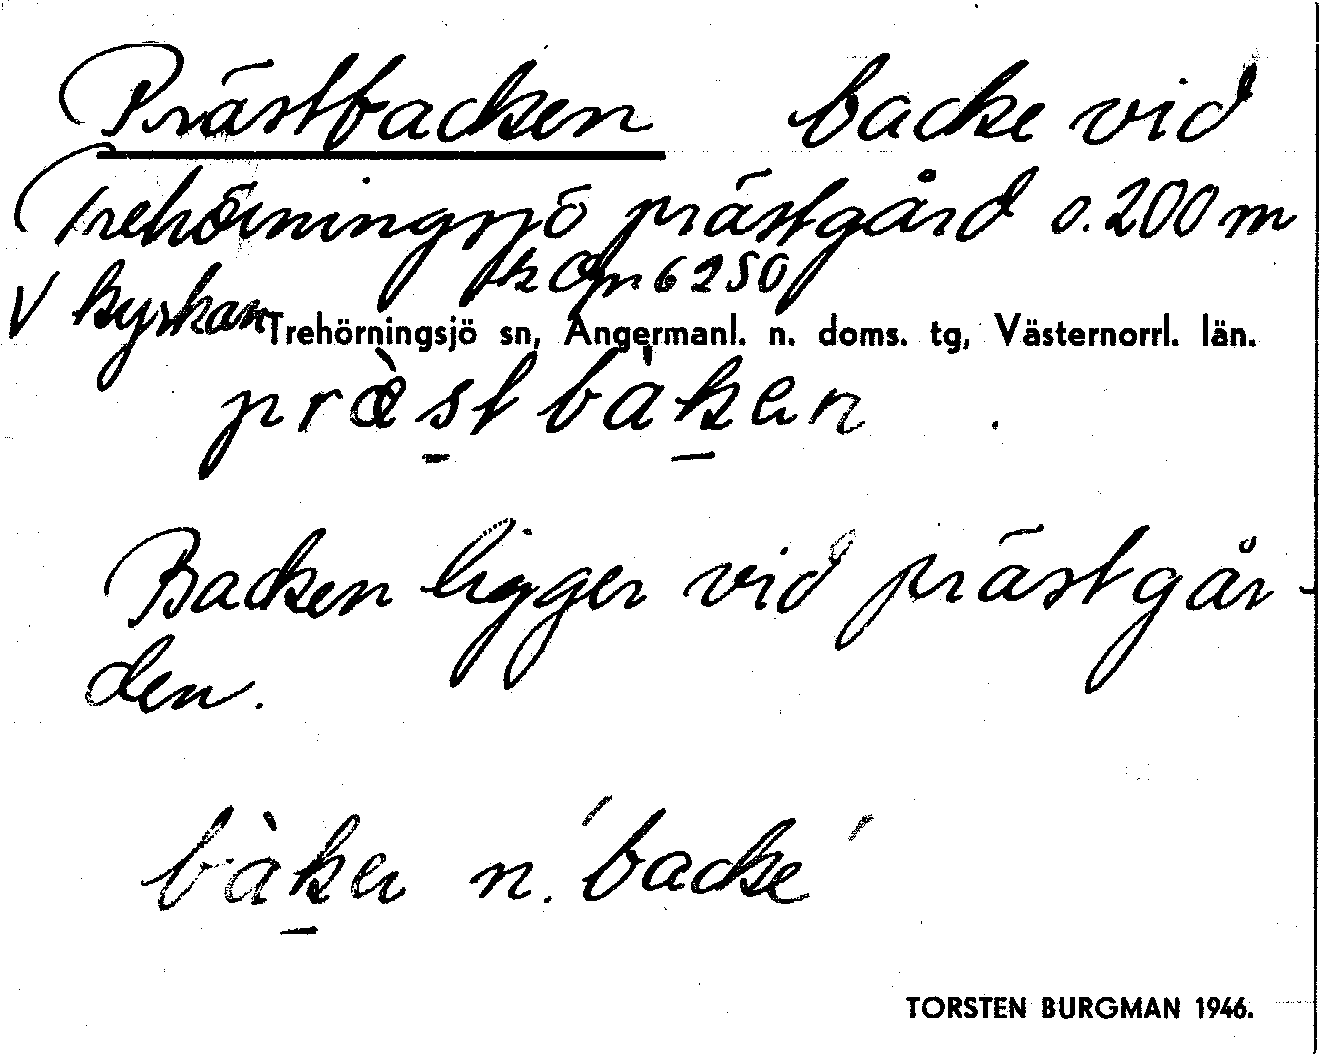 Prästbacken backe vid
Trehörningsjö prästgård o. 200 m
V kyrkan
Trehörningsjö sn, Ångermanl. n. doms. tg, Västernorrl. län.
Backen ligger vid prästgår-
den.
n. 'backe'
TORSTEN BURGMAN 1946.